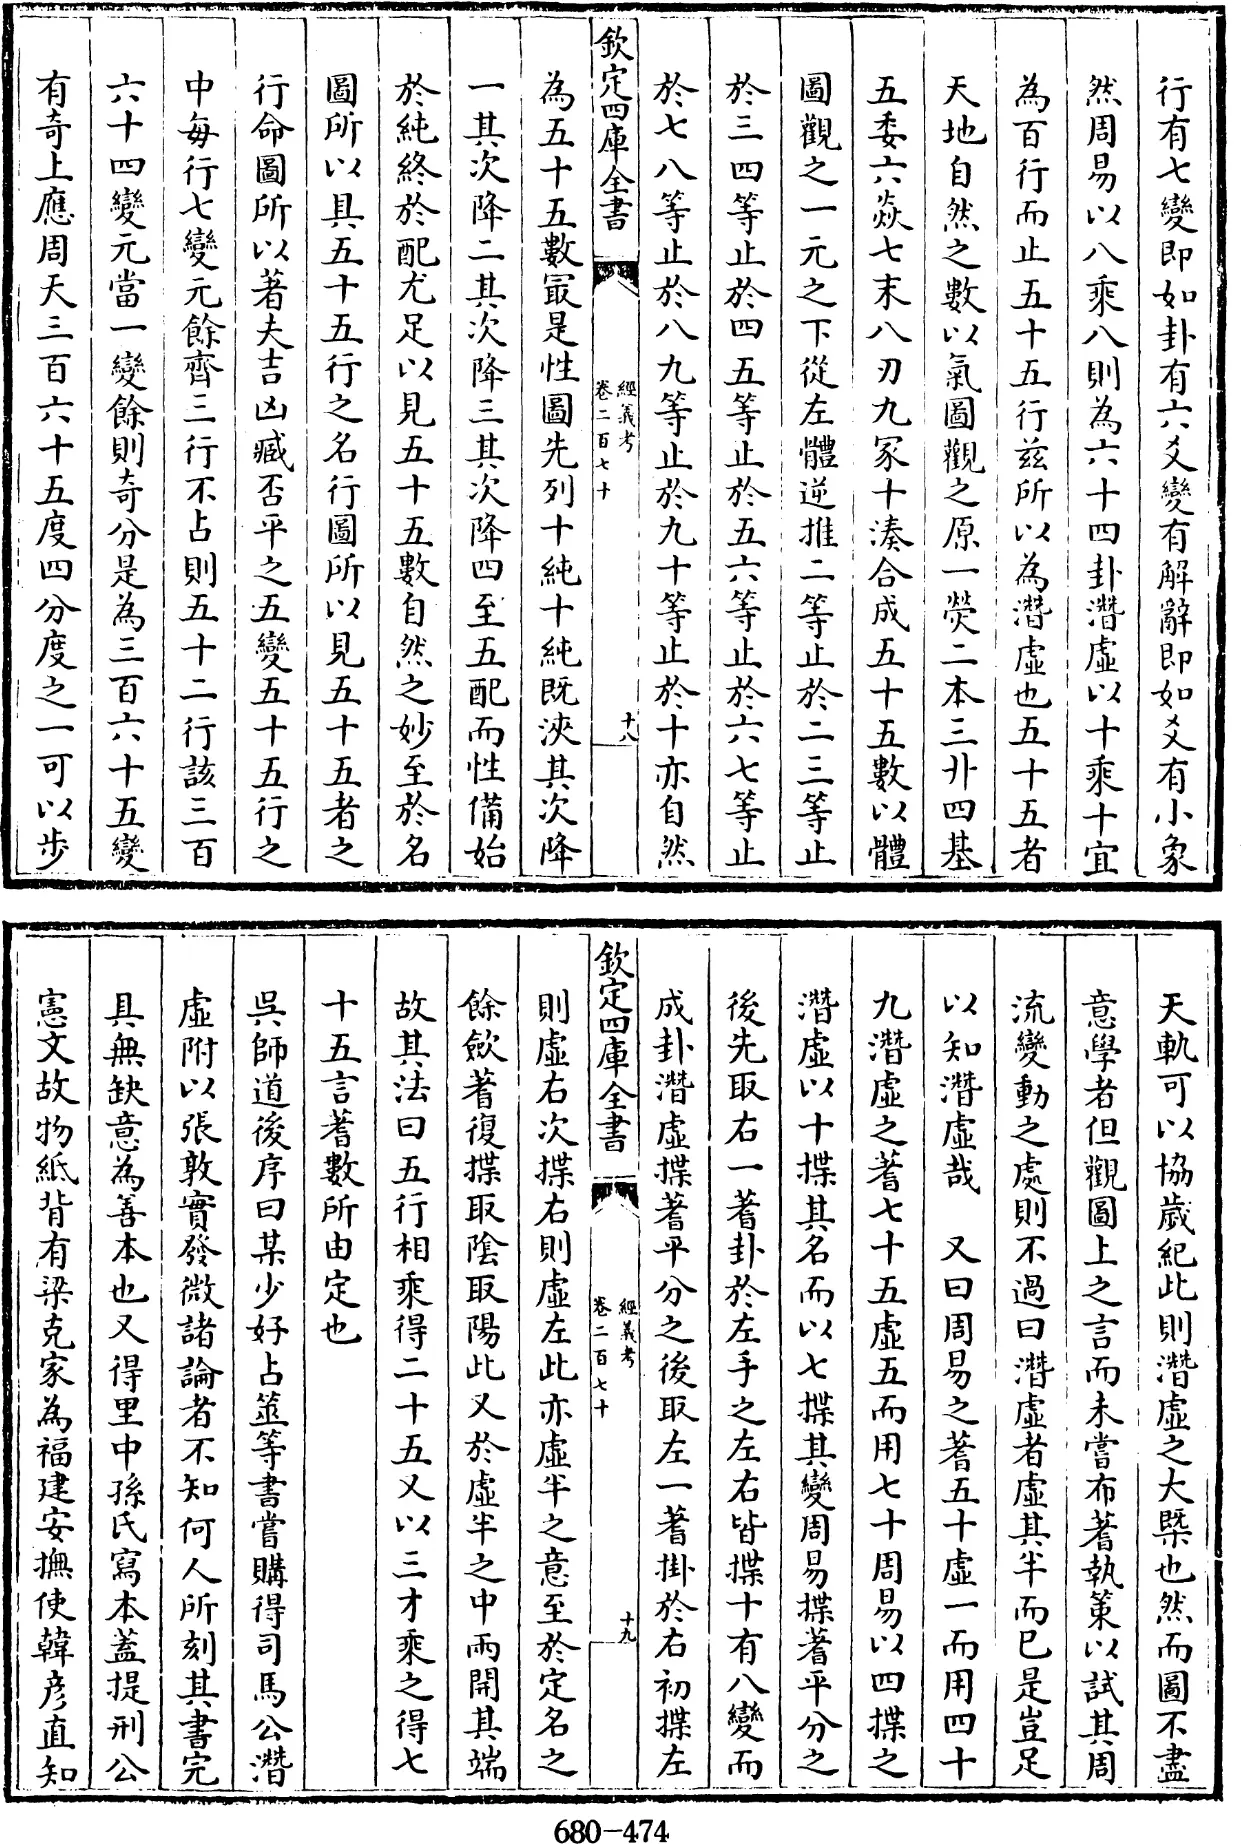 行有七變即如卦有六爻變有解辭即如爻有小象
然周易以八乘八則為六十四卦潛虛以十乘十宜
為百行而止五十五行兹所以為潛虛也五十五者
天地自然之數以氣圖觀之原一熒二本三丱四基
五委六焱七末八刃九冢十湊合成五十五數以體
圖觀之一元之下從左體逆推二等止於二三等止
於三四等止於四五等止於五六等止於六七等止
於七八等止於八九等止於九十等止於十亦自然
欽定四庫全書
經義考
卷二百七十
十八
為五十五數㝡是性圖先列十純十純既浹其次降
一其次降二其次降三其次降四至五配而性備始
於純終於配尤足以見五十五數自然之妙至於名
圖所以具五十五行之名行圖所以見五十五者之
行命圖所以著夫吉凶臧否平之五變五十五行之
中每行七變元餘齊三行不占則五十二行該三百
六十四變元當一變餘則奇分是為三百六十五變
有奇上應周天三百六十五度四分度之一可以步
天軌可以協歲紀此則潛虛之大槩也然而圖不盡
意學者但觀圖上之言而未嘗布蓍執策以試其周
流變動之處則不過曰潛虛者虛其半而已是豈足
以知潛虛哉　又曰周易之蓍五十虛一而用四十
九潛虛之蓍七十五虛五而用七十周易以四揲之
潛虛以十揲其名而以七揲其變周易揲蓍平分之
後先取右一蓍卦於左手之左右皆揲十有八變而
成卦潛虛揲蓍平分之後取左一蓍掛於右初揲左
欽定四庫全書
經義考
卷二百七十
十九
則虛右次揲右則虛左此亦虛半之意至於定名之
餘歛蓍復揲取陰取陽此又於虛半之中兩開其端
故其法曰五行相乘得二十五又以三才乘之得七
十五言蓍數所由定也
吳師道後序曰某少好占筮等書嘗購得司馬公潛
虛附以張敦實發微諸論者不知何人所刻其書完
具無缺意為善本也又得里中孫氏寫本蓋提刑公
憲文故物紙背有梁克家為福建安撫使韓彥直知
680-474